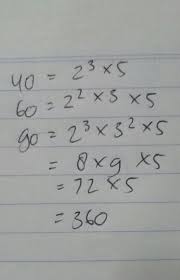 40 = 2³ × 5
60 = 2² × 3 × 5
90 = 2³ × 3² × 5
= 8 × 9 × 5
= 72 × 5
= 360